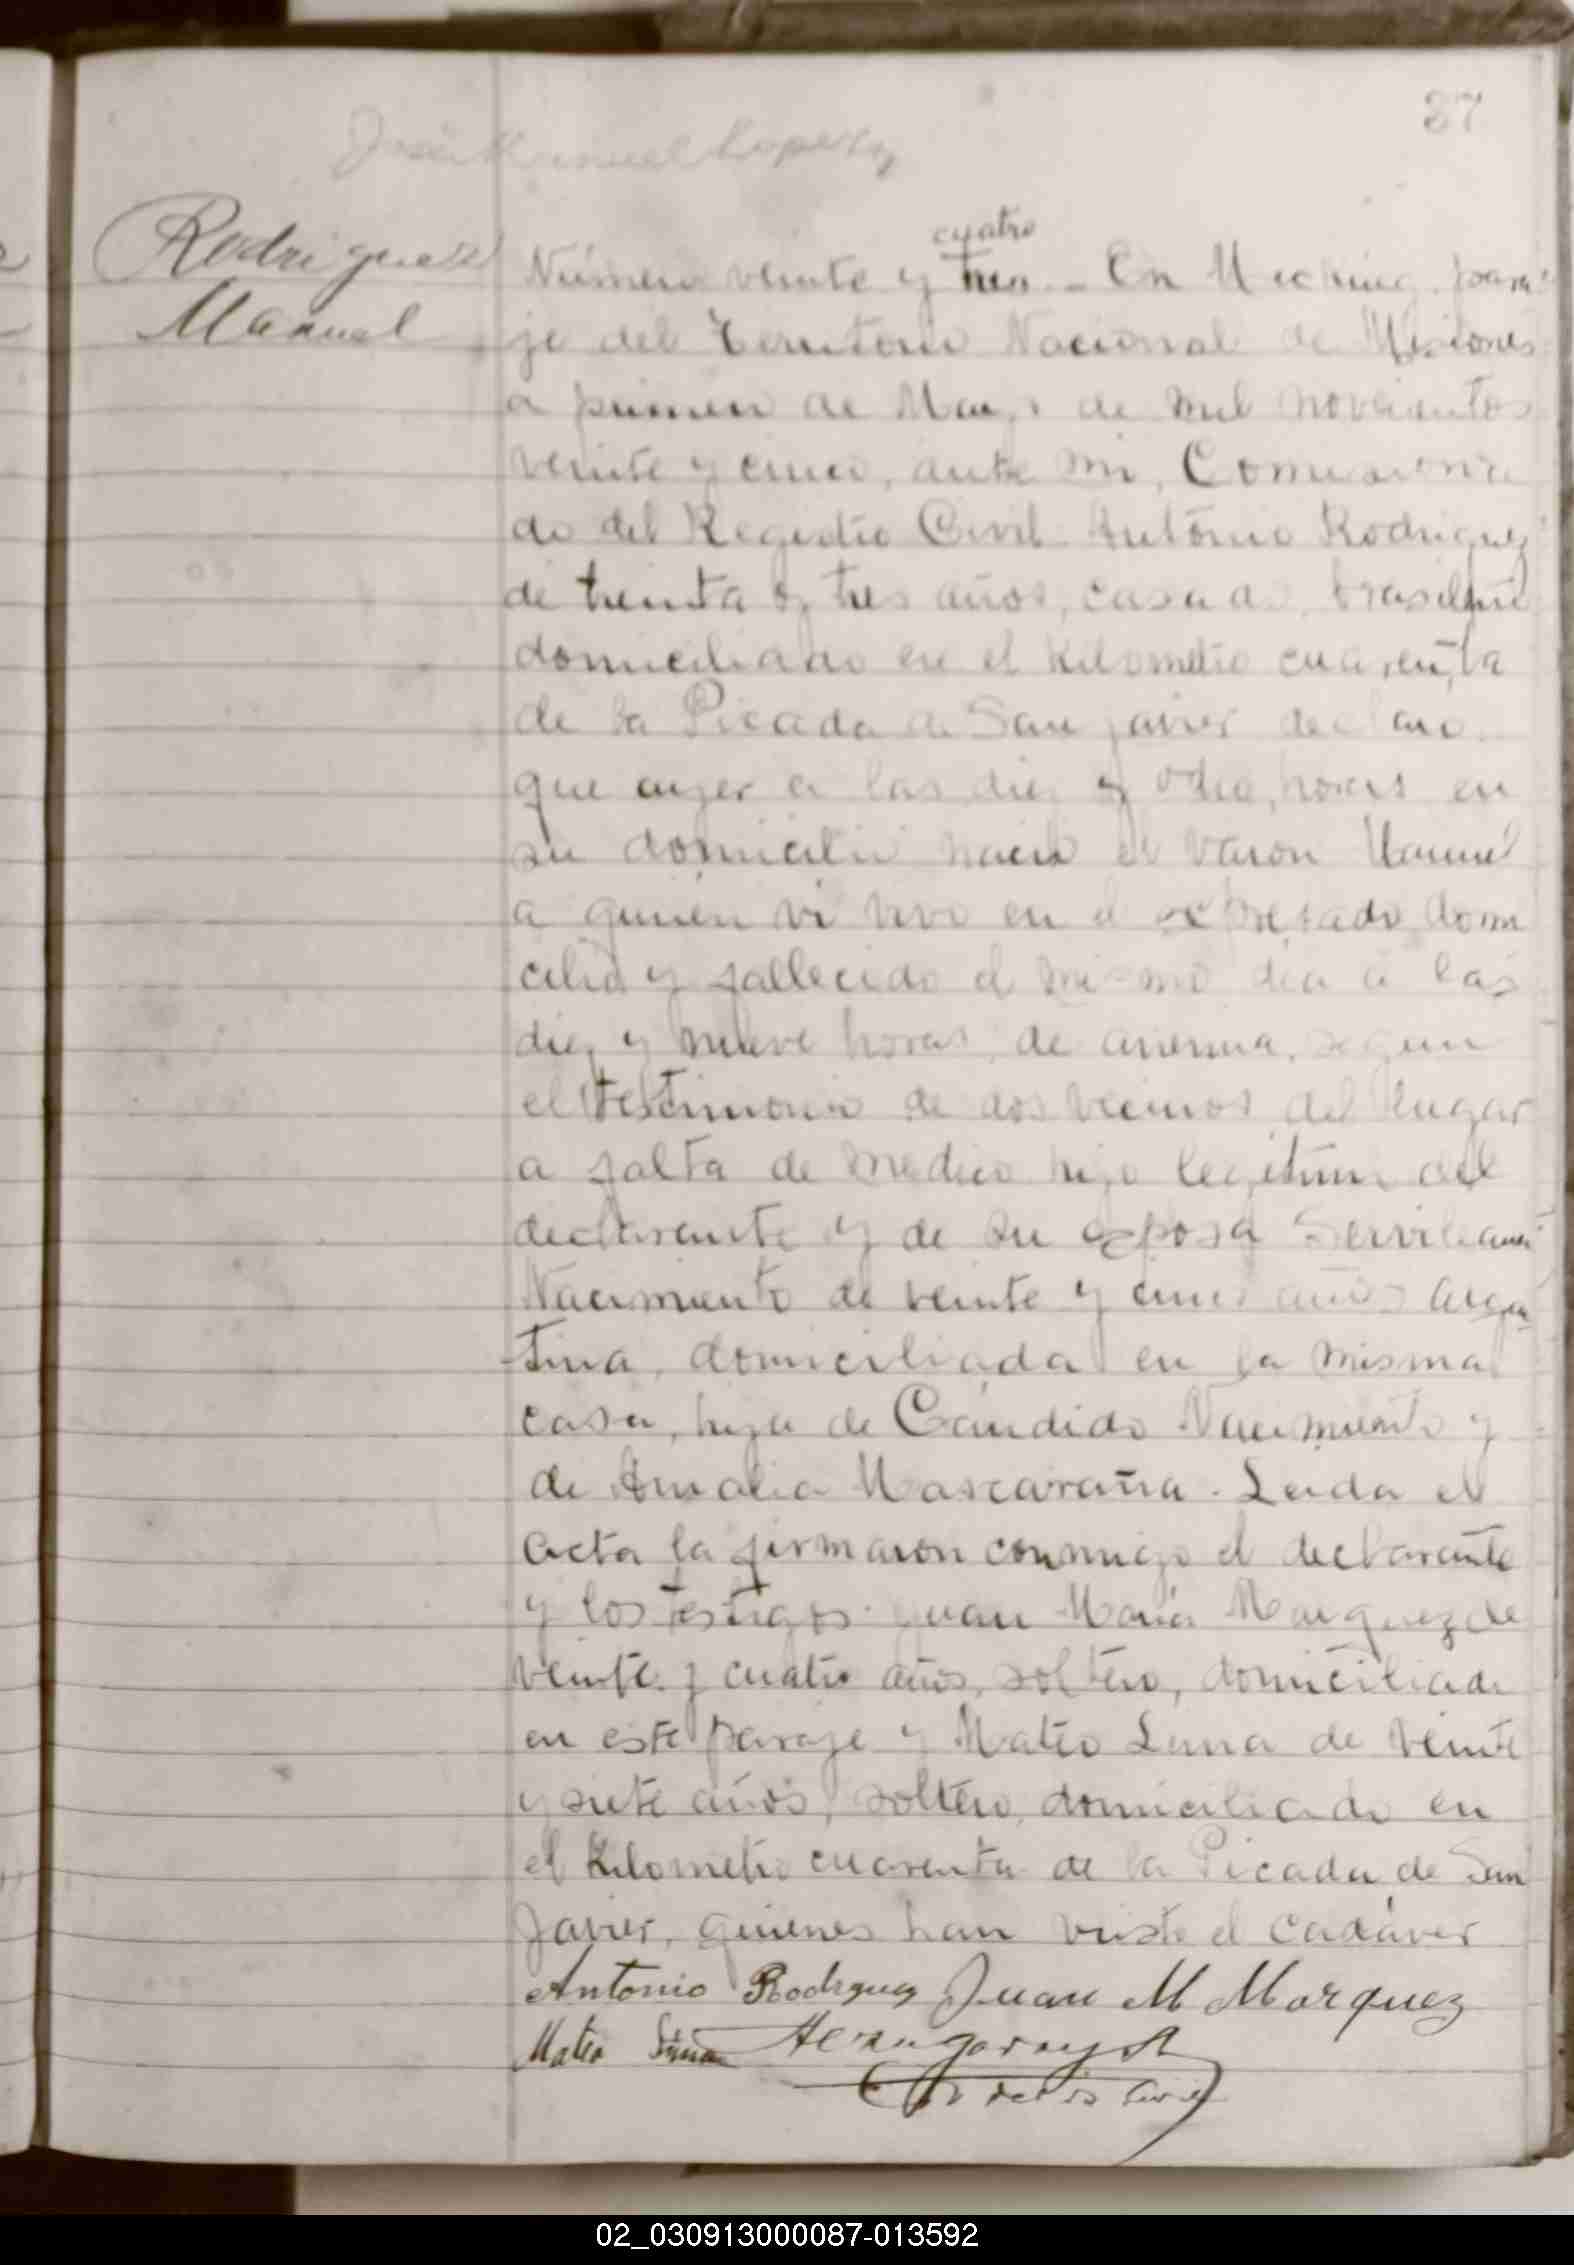 37
José Manuel Lopez
Rodriguez
Manuel
cuatro
Número veinte y tres. - En Mecking, para-
je del Territorio Nacional de Misiones
a primero de Mayo de mil novecientos
veinte y cinco, ante mi, Comisiona
do del Registro Civil Antonio Rodriguez
de treinta y tres años, casado, brasileño
domiciliado en el kilometro cuarenta
de la Picada de San Javier declaro
que ayer a las diez y ocho horas en
su domicilio nació el varon Manuel
a quien vi vivo en el expresado domi
cilio y fallecido el mismo dia a las
diez y nueve horas de anemia, segun
el testimonio de dos vecinos del lugar
a falta de medico hijo legitimo del
declarante y de su esposa Serviliana
Nacimiento de veinte y cinco años argen
tina, domiciliada en la misma
casa, hija de Cándido Nacimiento y
de Amalia Mascaraña. Leida el
acta la firmaron conmigo el declarante
y los testigos Juan Maria Marquez de
veinte y cuatro años, soltero, domiciliado
en este paraje y Mateo Luna de veinte
y siete años, soltero, domiciliado en
el kilometro cuarenta de la Picada de San
Javier, quienes han visto el cadáver
Antonio Rodriguez Juan M Marquez
Mateo
02_030913000087-013592